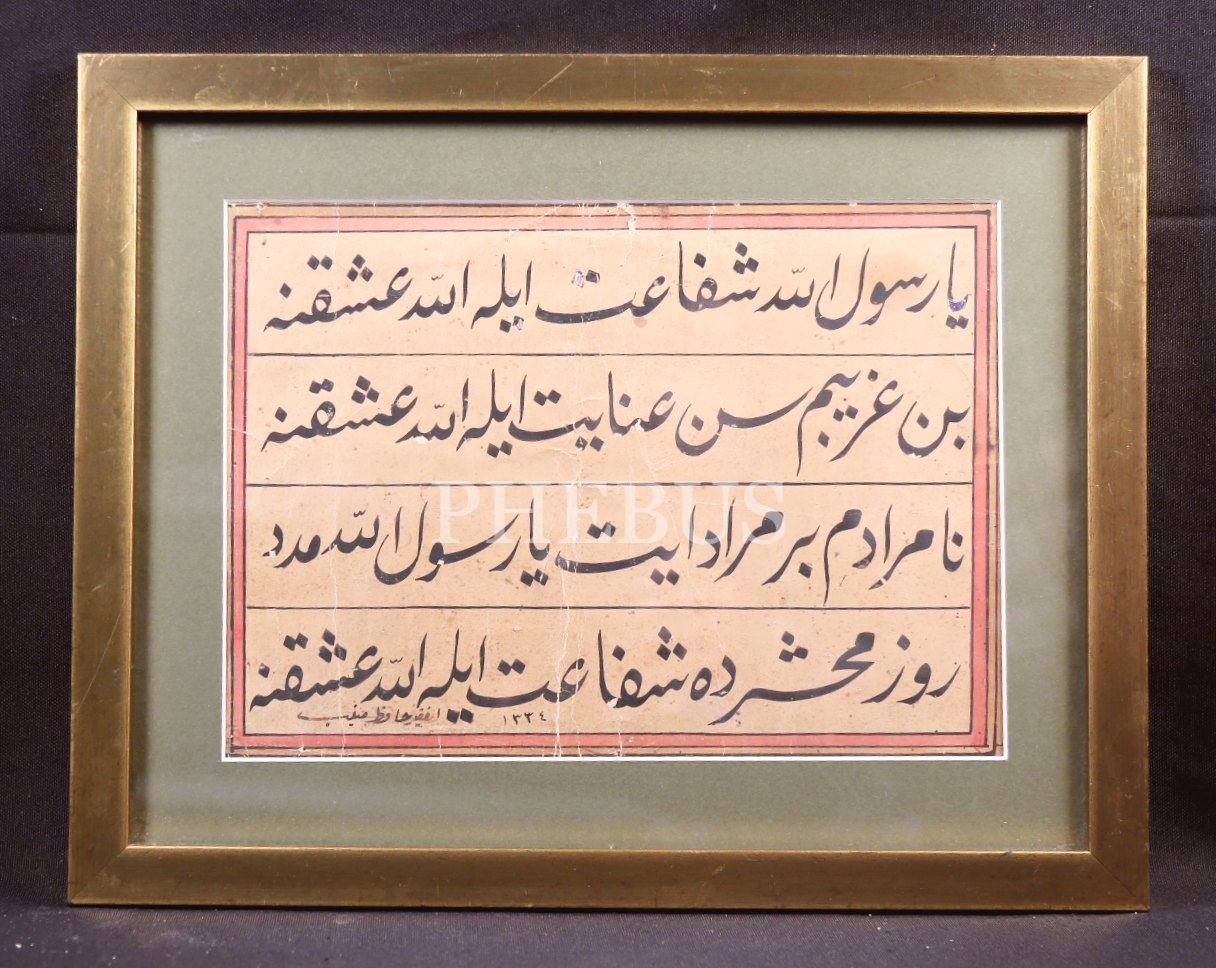 يا رسول الله شفاعت ايله الله عشقنه
بن غريبم سن عنايت ايله الله عشقنه
نامرادم بر مراد ايت يا رسول الله مدد
روز محشرده شفاعت ايله الله عشقنه
الفقير حافظ ١٣٣٤
PHEBUS